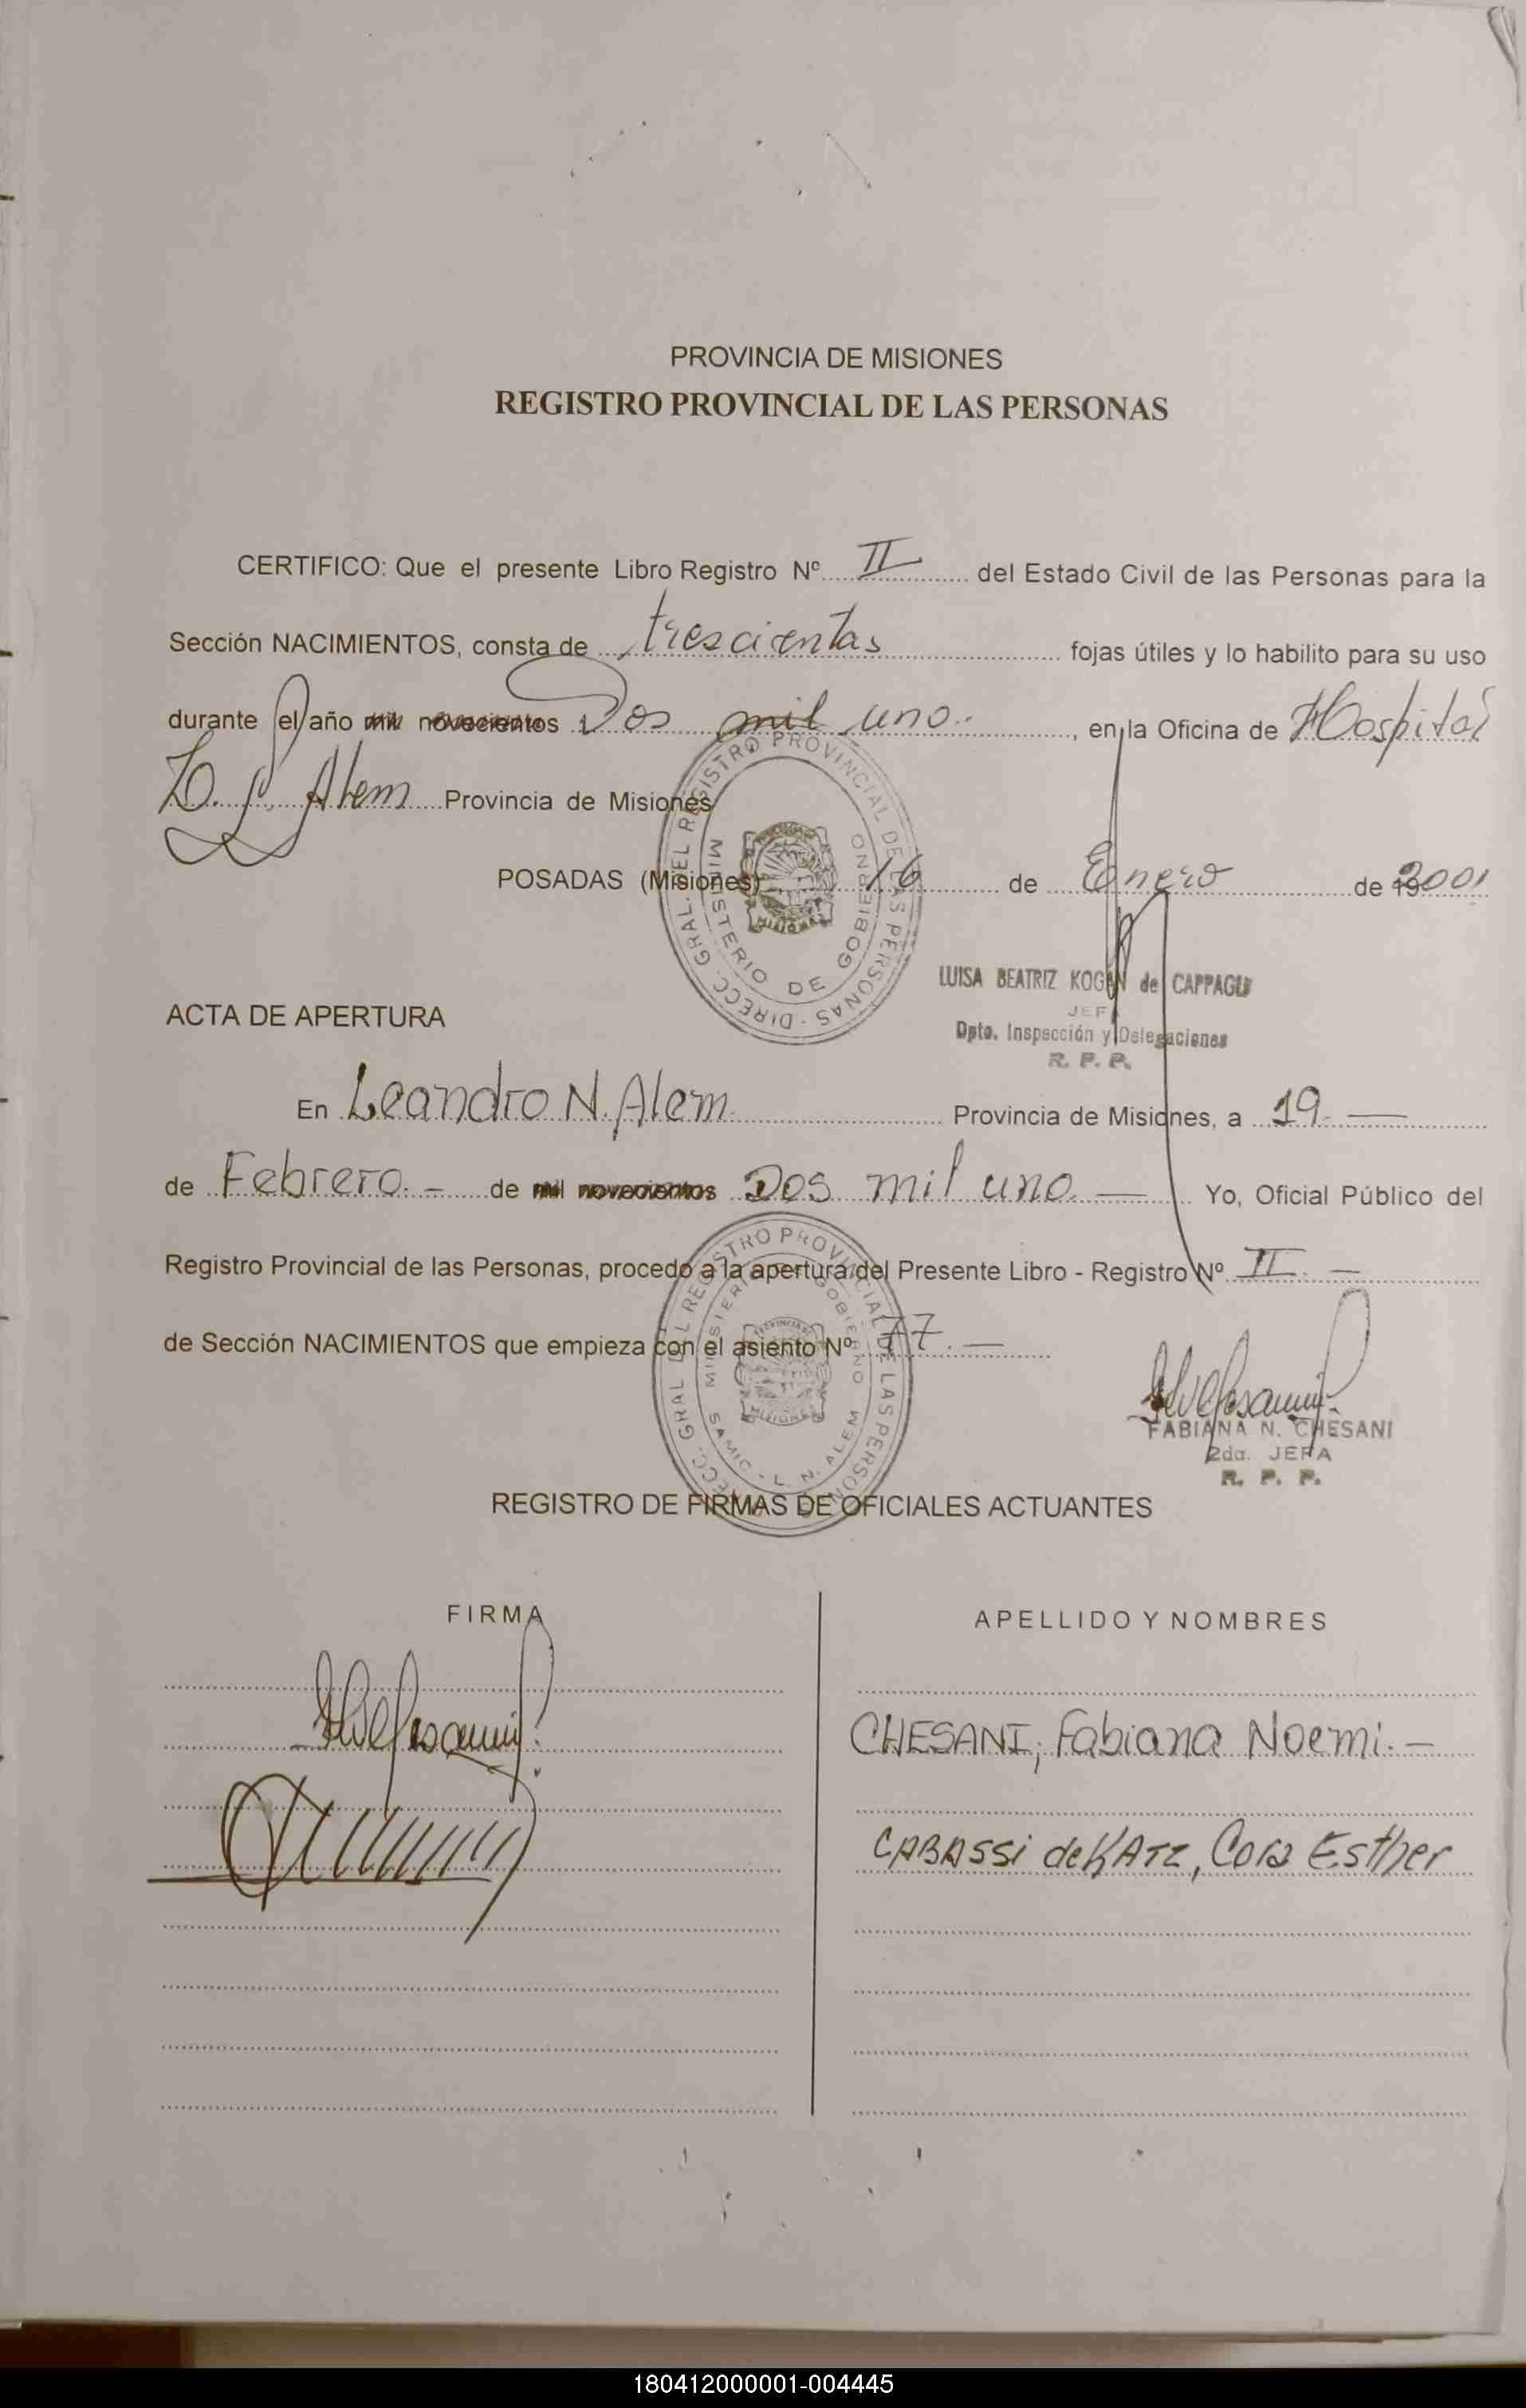 PROVINCIA DE MISIONES
REGISTRO PROVINCIAL DE LAS PERSONAS
CERTIFICO: Que el presente Libro Registro Nº II del Estado Civil de las Personas para la
Sección NACIMIENTOS, consta de trescientas fojas útiles y lo habilito para su uso
durante el año mil novecientos Dos mil uno.- , en la Oficina de Hospital
Alem Provincia de Misiones
POSADAS (Misiones) 16 de Enero de 2001
DIRECC. GRAL. DEL REGISTRO PROVINCIAL DE LAS PERSONAS
MINISTERIO DE GOBIERNO
MISIONES
LUISA BEATRIZ KOGAN de CAPPAGLI
JEFA
Dpto. Inspección y Delegaciones
R. P. P.
ACTA DE APERTURA
En Leandro N. Alem. Provincia de Misiones, a 19. —
de Febrero. - de mil novecientos Dos mil uno. — Yo, Oficial Público del
Registro Provincial de las Personas, procedo a la apertura del Presente Libro - Registro Nº II. —
de Sección NACIMIENTOS que empieza con el asiento Nº 77. —
DIRECC. GRAL. DEL REGISTRO PROVINCIAL DE LAS PERSONAS
MINISTERIO DE GOBIERNO
SAMIC - L. N. ALEM
MISIONES
FABIANA N. CHESANI
2da. JEFA
R. P. P.
REGISTRO DE FIRMAS DE OFICIALES ACTUANTES
FIRMA
APELLIDO Y NOMBRES
CHESANI, Fabiana Noemi. -
CABASSi de KATZ, Cora Esther
180412000001-004445